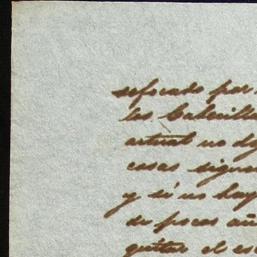 sofocado por
los Cabecilla
actual no de
cosas sigue
y si no hay
de pocos añ
quitar el es